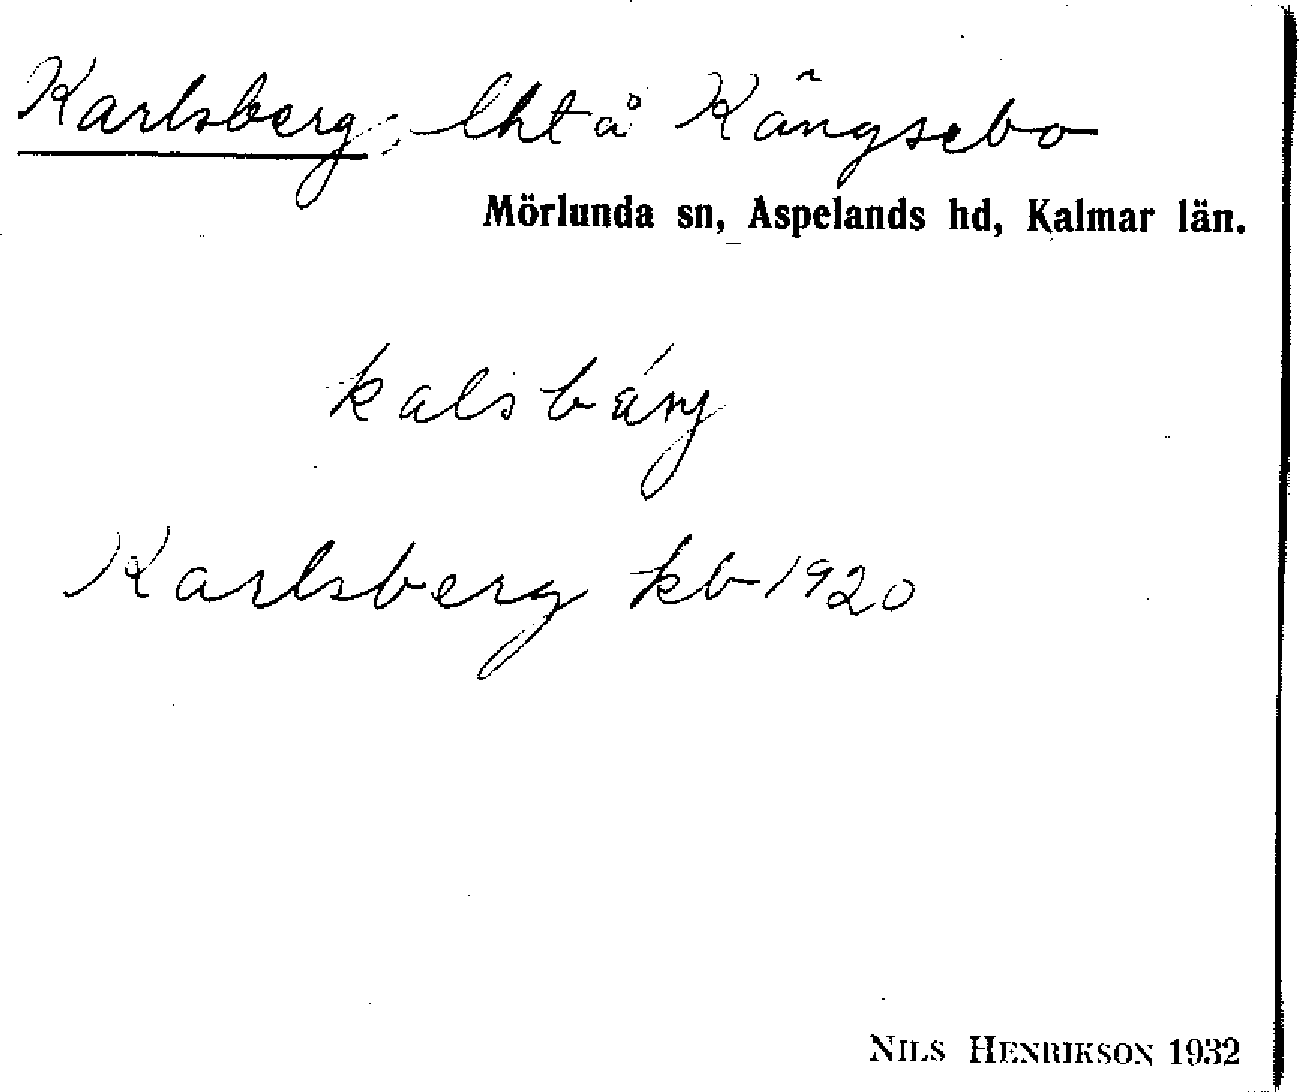 Karlsberg, lht å Kångsebo
Mörlunda sn, Aspelands hd, Kalmar län.
kalsbárj
Karlsberg kb 1920
NILS HENRIKSON 1932